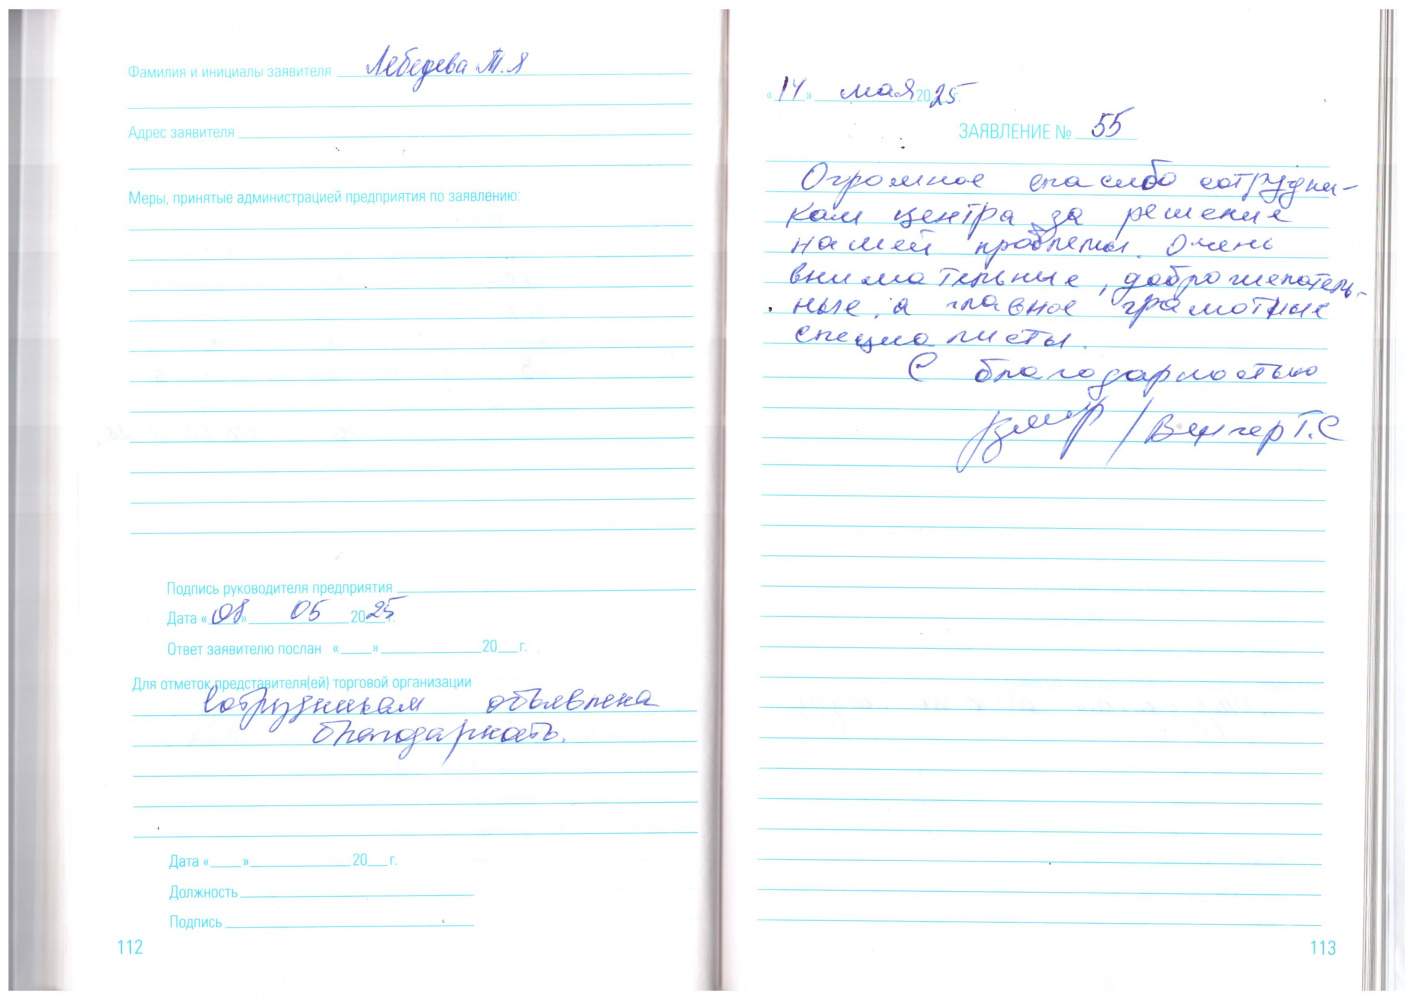 Фамилия и инициалы заявителя Лебедева Т.Я
Адрес заявителя
Меры, принятые администрацией предприятия по заявлению:
Подпись руководителя предприятия
Дата «08» 05 2025г.
Ответ заявителю послан «___» ______ 20__г.
Для отметок представителя(ей) торговой организации
Сотрудникам объявлена
благодарность.
Дата «___» ______ 20__г.
Должность
Подпись
112
«14» мая 2025
ЗАЯВЛЕНИЕ № 55
Огромное спасибо сотрудни-
кам центра за решение
нашей проблемы. Очень
внимательные, доброжелатель-
ные, а главное грамотные
специалисты.
С благодарностью
/ Венгер Т.С
113